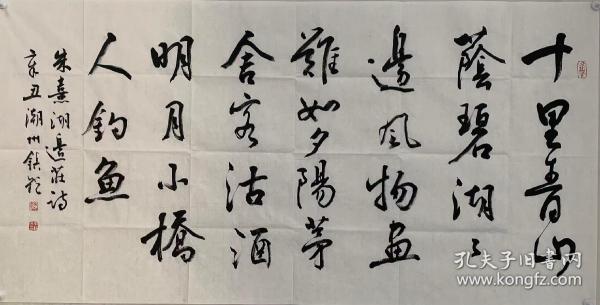 十里青山
蔭碧湖々
邊风物畫
難如夕陽茅
舍客沽酒
明月小橋
人釣魚
朱熹湖邊莊诗
辛丑潮州
孔夫子旧书网
www.kongfz.com